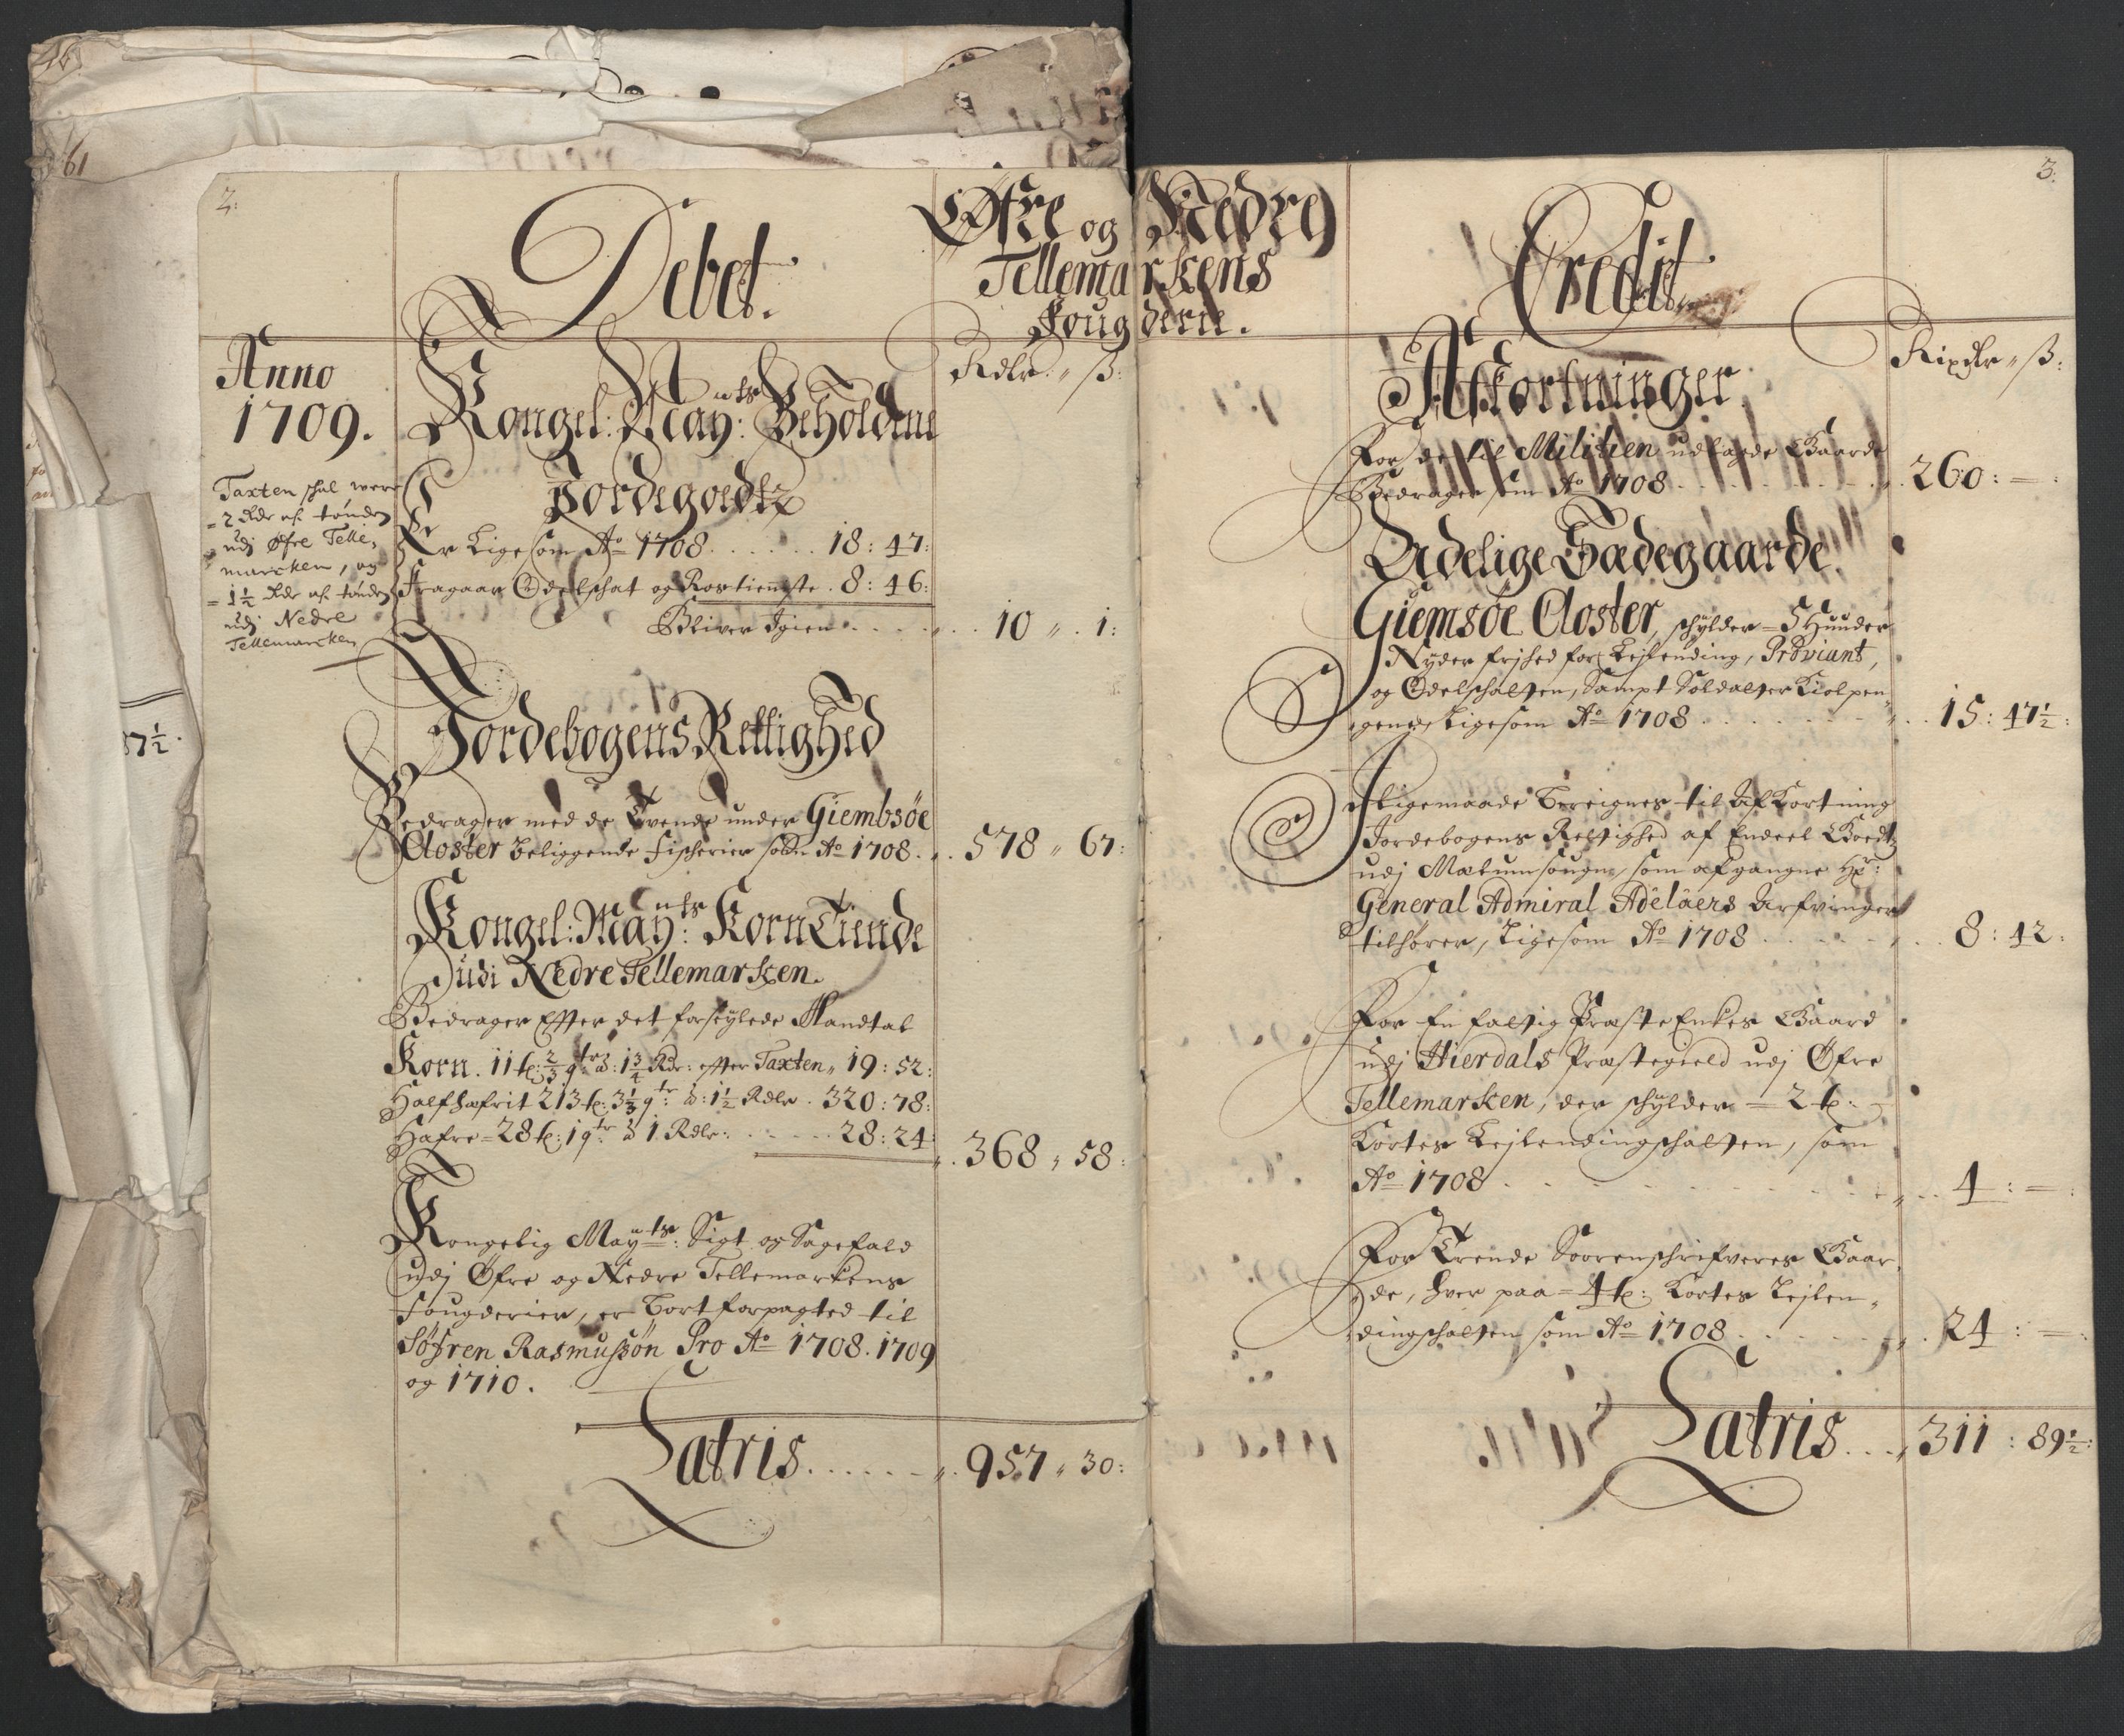 46
61
7½.
2:
Debet.
Øfre og Nedre
Tellemarkens
Fougderie.
Rdlr. " ß:
Anno
1709.
Taxten schal were
= 2 Rdr af tønden
udj Øfre Telle-
marcken, og
= 1½ Rdr af tønden
udj Nedre
Tellemarcken
Kongel: May:ts Beholdene
Jordegoedtz
Er Ligesom Ao 1708 . . . . . . 18: 47:
Fragaar Odelschat og Rostienneste . 8: 46:
Bliver Igien . . . . . . . 10 " . 1:
Jordebogens Rettighed
Bedrager med de Tvende under Giembsøe
Closter beliggende Fischerier som Ao 1708 . . . 578 " 67:
Kongel: May:ts Korn Tiende
udi Nedre Tellemarken.
Bedrager Effter det forseylede Mandtal
Korn. 11 t: 2/3 qtr: à: 1¾ Rdr: effter Taxten " 19: 52:
Halfhafrit 213 t: 3⅓ qtr: à: 1½ Rdlr . 320: 78:
Hafre = 28 t: 1 qtr: à 1. Rdlr: . . . . . 28: 24:
368 " 58:
Kongelig Mayts: Sigt og Sagefald
udj Øfre og Nedre Tellemarkens
Fougderier, er Bortforpagted til
Søfren Rasmussøn Pro Ao 1708. 1709
og 1710.
Latris . . . . . . . 957 " 30:
3:
Credit
Rixdlr " ß:
Afkortninger
For de til Militien udlagde Gaarde
Bedrager som Ao 1708 . . . . . . 260: =:
Adelige Sædegaarde.
Giemsøe Closter, schylder = 5 Hunder
Nyder frihed for Lejlending, Proviant,
og Odelschatten, Sampt Soldater
Ligesom Ao 1708 . . . . . . 15: 47½:
Jligemaade Bereignes til AfKortning
Jordebogens Rettighed af Endeel Goedtz
udj Mælum sougn, som afgangne Hr:
General Admiral Adelâers Arfvinger
tilhører, Ligesom Ao 1708 . . . . . . 8: 42:
For En fattig Præste Enkes Gaard
udj Hierdals Præstegield udj Øfre
Tellemarken, der schylder = 2 t: -
Kortes Lejlendingschatten, som
Ao 1708 . . . . . . 4: =:
For Trende Soerenschrifveres Gaar-
de, hver paa = 4 t: Kortes Lejlen-
dingschatten som Ao 1708 . . . . . 24: =:
Latris . . . 311: 89½: